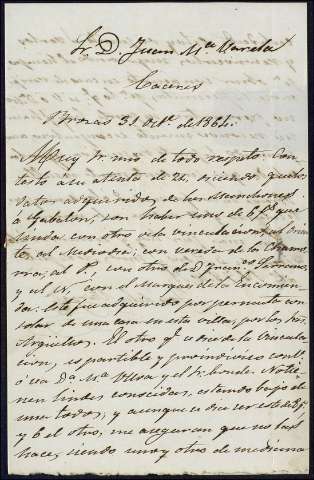 Sr. D. Juan Mª Varela
Caceres
Brozas 31 Octe. de 1864.
Muy Sr. mio de todo respeto: Con-
testo á su atenta de 22, diciendo, que los
datos adquiridos, de las
á Gabeton, son haber unos de 6 ps. que
linda con otro de la vinculacion, al Orien-
te, al Mediodia; con vereda de la
al Pe., con otro de D. Fran.co
y al Ne. con el Marques de la Encomien-
da: Este fue adquirido por permuta con
solar de una casa en esta villa, por los Sres.
Argüellos. El otro qe. se dice de la Vincula-
cion, es partible y proindiviso con la
ó sea Da. Ma. Ulloa y el Sr. Conde. No tie-
nen lindes conocidas, estando bajo de
una todos; y aunque se dice ser este de 8 ps.
y 6 el otro, me aseguran que no los
hace, siendo uno y otro de mediana